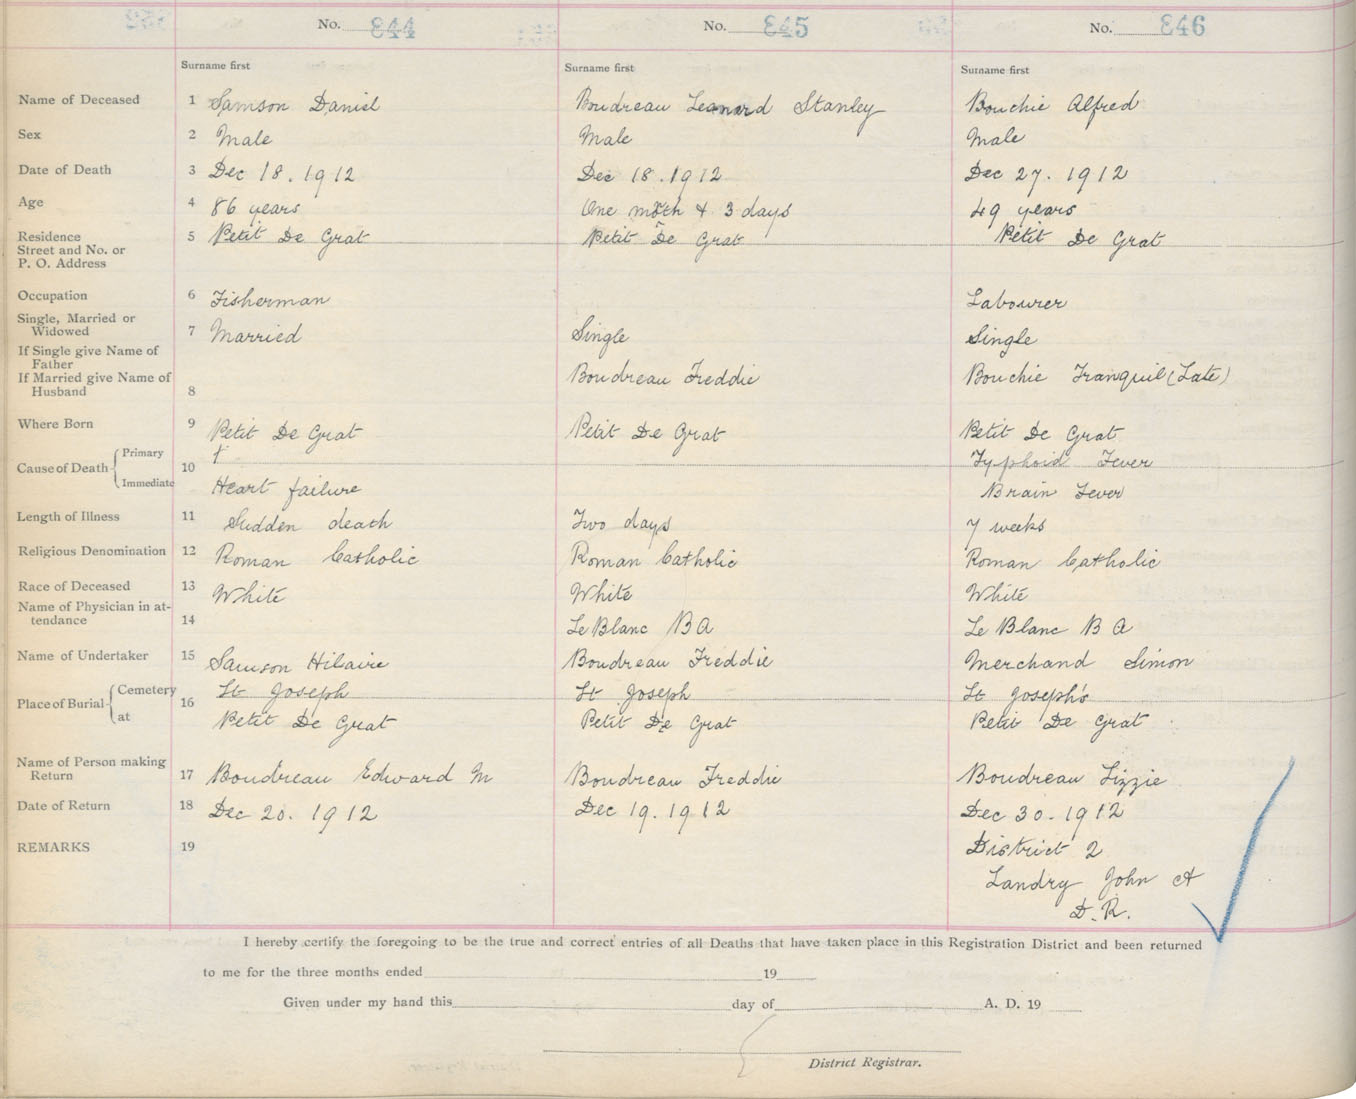 No. 844 No. 845 No. 846
Surname first Surname first Surname first
Name of Deceased 1 Samson Daniel Boudreau Leonard Stanley Bouchie Alfred
Sex 2 Male Male Male
Date of Death 3 Dec 18. 1912 Dec 18. 1912 Dec 27. 1912
Age 4 86 years One month & 3 days 49 years
Residence 5 Petit De Grat Petit De Grat Petit De Grat
Street and No. or
P. O. Address
Occupation 6 Fisherman Labourer
Single, Married or
Widowed 7 Married Single Single
If Single give Name of
Father
If Married give Name of Boudreau Freddie Bouchie Tranquil (Late)
Husband 8
Where Born 9 Petit De Grat Petit De Grat Petit De Grat
Cause of Death Primary Typhoid Fever
10 Immediate Heart failure Brain Fever
Length of Illness 11 Sudden death Two days 7 weeks
Religious Denomination 12 Roman Catholic Roman Catholic Roman Catholic
Race of Deceased 13 White White White
Name of Physician in at-
tendance 14 Le Blanc B A Le Blanc B A
Name of Undertaker 15 Samson Hilaire Boudreau Freddie Merchand Simon
Place of Burial Cemetery St Joseph St Joseph St Joseph's
16 at Petit De Grat Petit De Grat Petit De Grat
Name of Person making
Return 17 Boudreau Edward M Boudreau Freddie Boudreau Lizzie
Date of Return 18 Dec 20. 1912 Dec 19. 1912 Dec 30. 1912
REMARKS 19 District 2
Landry John A
D. R.
I hereby certify the foregoing to be the true and correct entries of all Deaths that have taken place in this Registration District and been returned
to me for the three months ended 19
Given under my hand this day of A. D. 19
District Registrar.